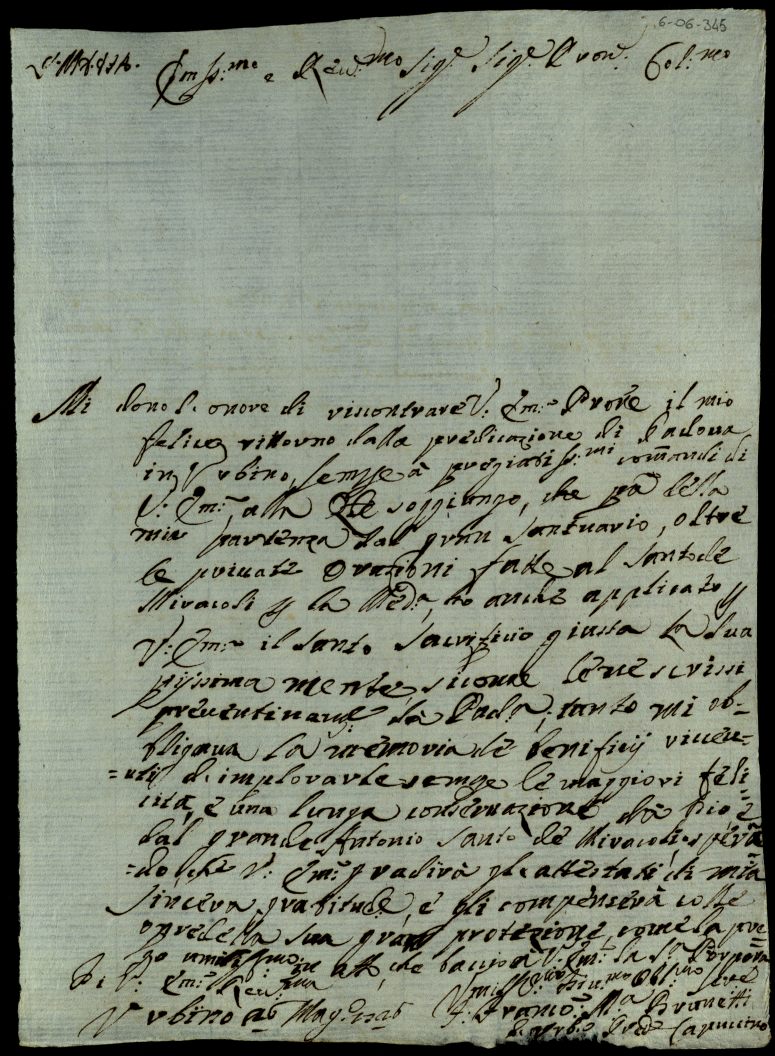 6-06-345
Em.ss:mo e Reu.mo Sig.e Sig.e Pron. Col.mo
Mi dono l'onore di riscontrare V: Em.a Prone il mio
felice rittorno dalla predicazione di Padova
in Vrbino, sempre à pregiatiss:mi comandi di
V: Em.a, alla che soggiungo, che pã della
mia partenza dal gran santuario, oltre
le priuate orationi fatte al Santo de
Miracoli p la Med.a, ho anche applicato p
V: Em.a il santo sacrificio giusta la sua
pijssima mente, sicome le ne scrissi
da Pad.a, tanto mi ob-
bligaua la memoria de benificij riceu-
=uti d'implorarle sempre le maggiori feli-
cità, e una lunga conseruazione da Dio, e
dal grande Antonio Santo de Miracoli, sperã
=do, che V: Em.a gradirà gl'attestati di mia
sincera gratitud.e, e gli compenserà colle
opre della sua gran protezione, come la pre
go umilissimo in atto, che baccio à V: Em.a la S.a Porpora
Di V: Em.a Reu.ma
Vrbino a6 Mag.o 1726
F. Franco M.a Brunetti
Capuccino